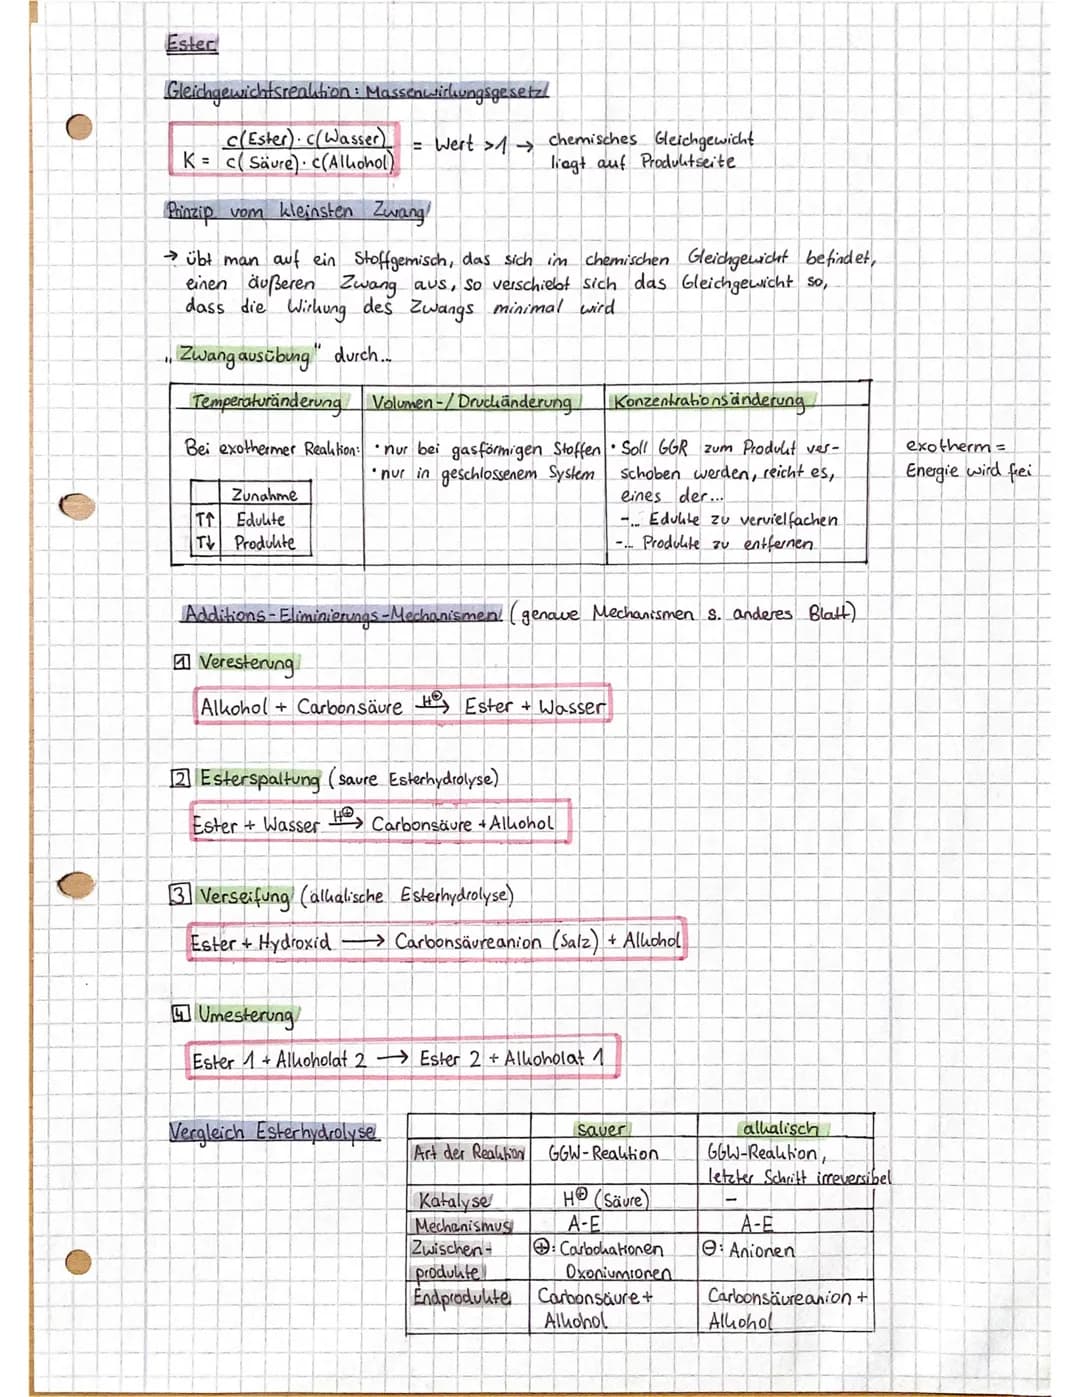 Ester
Gleichgewichtsreaktion: Massenwirkungsgesetz
K = c(Ester) · c(Wasser) / c(Säure) · c(Alkohol) = Wert >1 → chemisches Gleichgewicht
liegt auf Produktseite
Prinzip vom kleinsten Zwang
→ übt man auf ein Stoffgemisch, das sich im chemischen Gleichgewicht befindet,
einen äußeren Zwang aus, so verschiebt sich das Gleichgewicht so,
dass die Wirkung des Zwangs minimal wird
„Zwangausübung" durch...
Temperaturänderung
Bei exothermer Reaktion:
Zunahme
T↑ Edukte
T↓ Produkte
Volumen-/Druckänderung
• nur bei gasförmigen Stoffen
• nur in geschlossenem System
Konzentrationsänderung
• Soll GGR zum Produkt ver-
schoben werden, reicht es,
eines der...
-... Edukte zu vervielfachen
-... Produkte zu entfernen
exotherm =
Energie wird frei
Additions-Eliminierungs-Mechanismen (genaue Mechanismen s. anderes Blatt)
1 Veresterung
Alkohol + Carbonsäure H⊕→ Ester + Wasser
2 Esterspaltung (saure Esterhydrolyse)
Ester + Wasser H⊕→ Carbonsäure + Alkohol
3 Verseifung (alkalische Esterhydrolyse)
Ester + Hydroxid → Carbonsäureanion (Salz) + Alkohol
4 Umesterung
Ester 1 + Alkoholat 2 → Ester 2 + Alkoholat 1
Vergleich Esterhydrolyse
sauer alkalisch
Art der Reaktion GGW-Reaktion GGW-Reaktion,
letzter Schritt irreversibel
Katalyse H⊕ (Säure) -
Mechanismus A-E A-E
Zwischen- ⊕: Carbokationen ⊖: Anionen
produkte Oxoniumionen
Endprodukte Carbonsäure + Carbonsäureanion +
Alkohol Alkohol